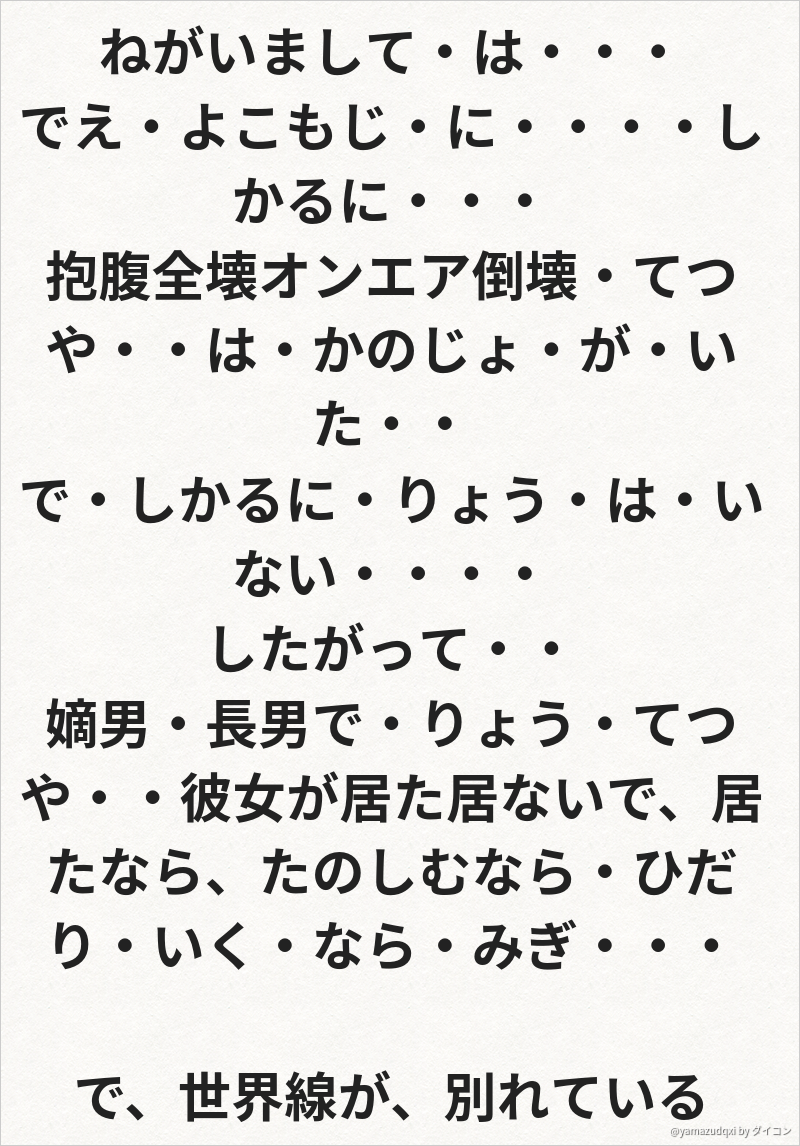 ねがいまして・は・・・
でえ・よこもじ・に・・・・し
かるに・・・
抱腹全壊オンエア倒壊・てつ
や・・は・かのじょ・が・い
た・・
で・しかるに・りょう・は・い
ない・・・・
したがって・・
嫡男・長男で・りょう・てつ
や・・彼女が居た居ないで、居
たなら、たのしむなら・ひだ
り・いく・なら・みぎ・・・
で、世界線が、別れている
@yamazudqxi by ダイコン